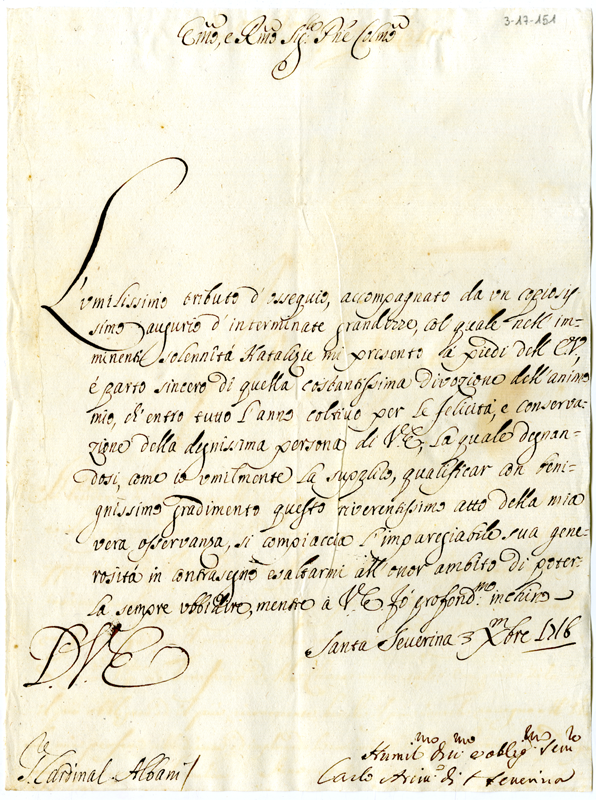 3-17-151
Emo, e Rmo Sigre Pne Colmo
L'umilissimo tributo d'ossequio, accompagnato da un copiosis
simo augurio d'interminate grandezze, col quale nell' im-
minenti solennità Natalizie mi presento a piedi dell' E.V.,
è parto sincero di quella costantissima divozione dell'animo
mio, ch'entro tutto l'anno coltivo per le felicità, e conserva-
zione della degnissima persona di V.E., la quale degnan-
dosi, come io umilmente la supplico, qualificar con beni-
gnissimo gradimento questo riverentissimo atto della mia
vera osservanza, si compiaccia l'impareggiabile sua gene-
rosità in contrasegno esaltarmi all'onor ambito di poter-
la sempre ubbidire, mentre à V.E. fò profondmo inchino
Santa Severina 3 Xmbre 1716
D.V.E.
Sr Cardinal Albani
Humilmo divmo e obligmo Servre
Carlo Arcivo di S Severina